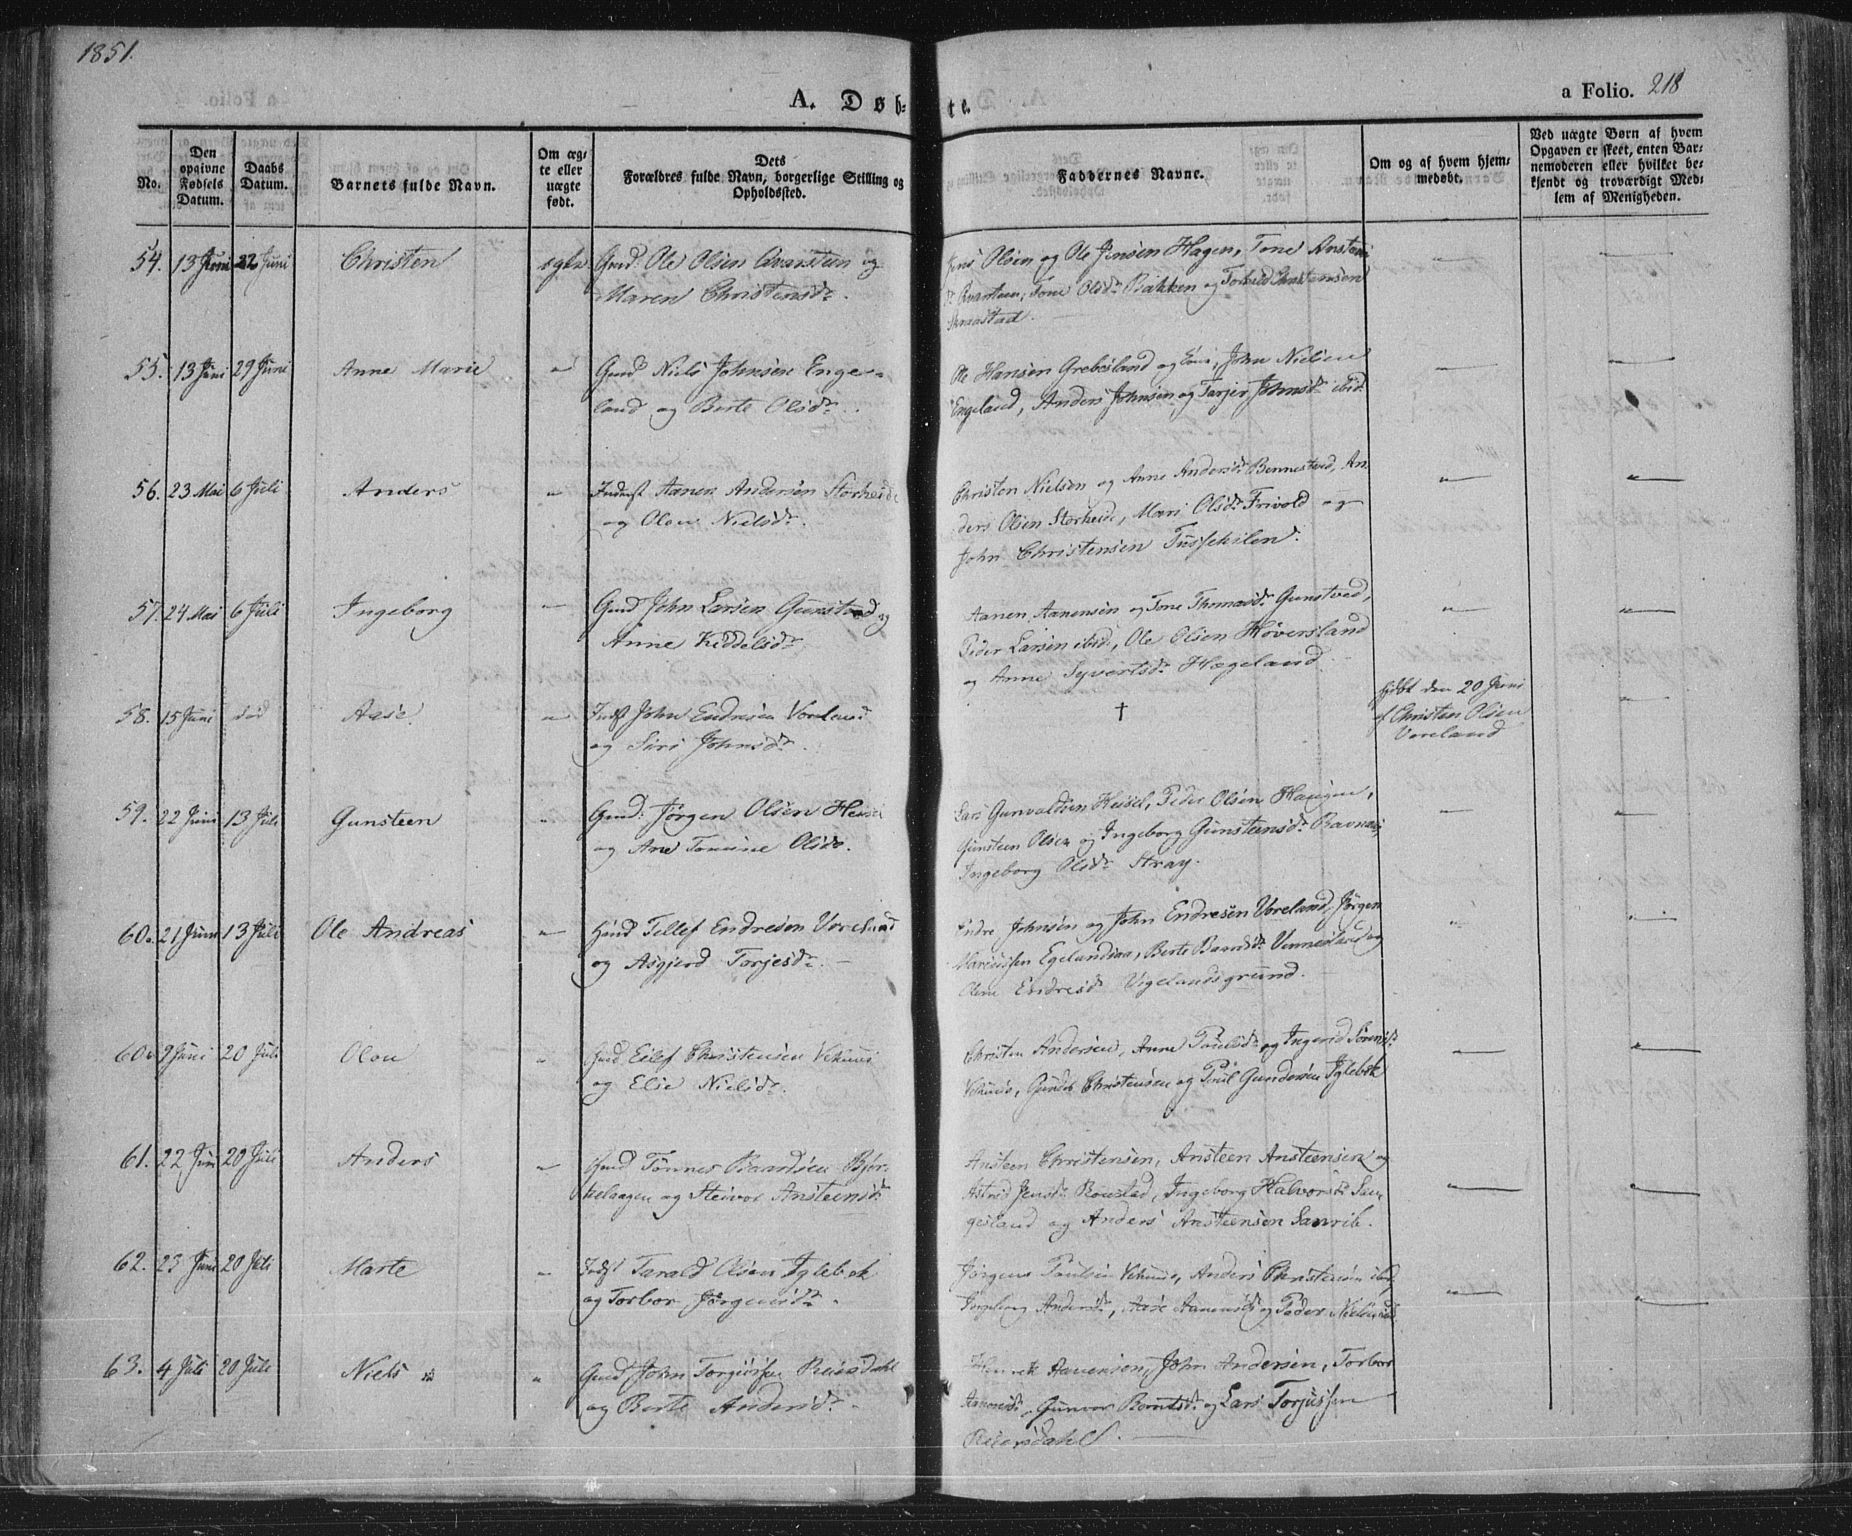 1851.
A. Døb-
te.
a Folio. 218
No.
Den opgivne Fødsels Datum.
Daabs Datum.
Barnets fulde Navn.
Om ægte eller uægte født.
Dets Forældres fulde Navn, borgerlige Stilling og Opholdssted.
Faddernes Navne.
Om og af hvem hjemmedøbt.
Ved uægte Børn af hvem Opgaven er skeet, enten Barnemoderen eller hvilket bekjendt og troværdigt Medlem af Menigheden.
54. 13 Juni 22 Juni Christen Gmd: Ole Olsen Qvarsteen og
Maren Christensdr.
Jens Olsen og Ole Jensen Hagen, Tone
Qvarsteen, Tone Olsdr Bakken og
55. 13 Juni 29 Juni Anne Marie Gmd Niels Johnsen Enge-
land og Berte Olsdr.
Ole Hansen Grebesland og John Nielsen
Engeland, Anders Johnsen og Tarjer Johnsdr ibid.
56. 23 Mai 6 Juli Anders Indrst Aanen Andersen Storheide
og Olou Nielsdr.
Christen Nielsen og Anne Andersdr Bennestved, An-
ders Olsen Storheide, Mari Olsdr Frivold og
John Christensen
57. 24 Mai 6 Juli Ingeborg Gmd John Larsen Gunstved og
Anne Keddelsdr
Aanen Aanensen og Tone Thomasdr Gunstved,
Peder Larsen ibid, Ole Olsen Høversland
og Anne Syvertsdr Hægeland.
58. 15 Juni død Aase. Indst John Endresen Voreland
og Siri Johnsdr.
†
hjdbt den 20 Juni
af Christen Olsen
Voreland
59. 22 Juni 13 Juli Gunsteen Gmd: Jørgen Olsen
og Ane Tomine Olsdr.
Lars Gunvaldsen Kessel, Peder Olsen Haugen,
Gunsteen Olsen og Ingeborg Gunsteensdr Ravnaas
Ingeborg Olsdr Stray.
60. 21 Juni 13 Juli Ole Andreas Hmd Tellef Endresen Voreland
og Asgjerd Torjesdr.
Endre Johnsen og John Endresen Voreland, Jørgen
Mariussen Egelandsaa, Berte Baardsdr Vennesland og
Olene Endresdr Vigelandsgrund.
60 9 Juni 20 Juli Olou Gmd Eilef Christensen Vehuus
og Elie Nielsdr.
Christen Andersen, Anne Poulsdr og Ingerid Sørensdr
Vehuus, Christensen og Poul Gundersen Iglebæk
61. 22 Juni 20 Juli Anders Gmd Tønnes Baardsen Bjør-
kelaagen og Steivor Ansteensdr
Ansteen Christensen, Ansteen Ansteensen og
Astrid Jensdr Ingeborg Halvorsdr San-
gesland og Anders Ansteensen Sanrib.
62. 23 Juni 20 Juli Marte Indst Tarald Olsen Iglebæk
og Torbor Jørgensdr.
Jørgens Poulsen Vehuus, Anders Christensen ibid,
Ingeborg Andersdr, Aase Aanensdr og Peder Nielsen ibid
63. 4 Juli 20 Juli Niels Gmd John Torjussen Reiersdahl
og Berte Andersdr.
Henrik Aanensen, John Andersen, Torbor
Aanensdr, Gunvor Berntsdr og Lars Torjussen
Reiersdahl.